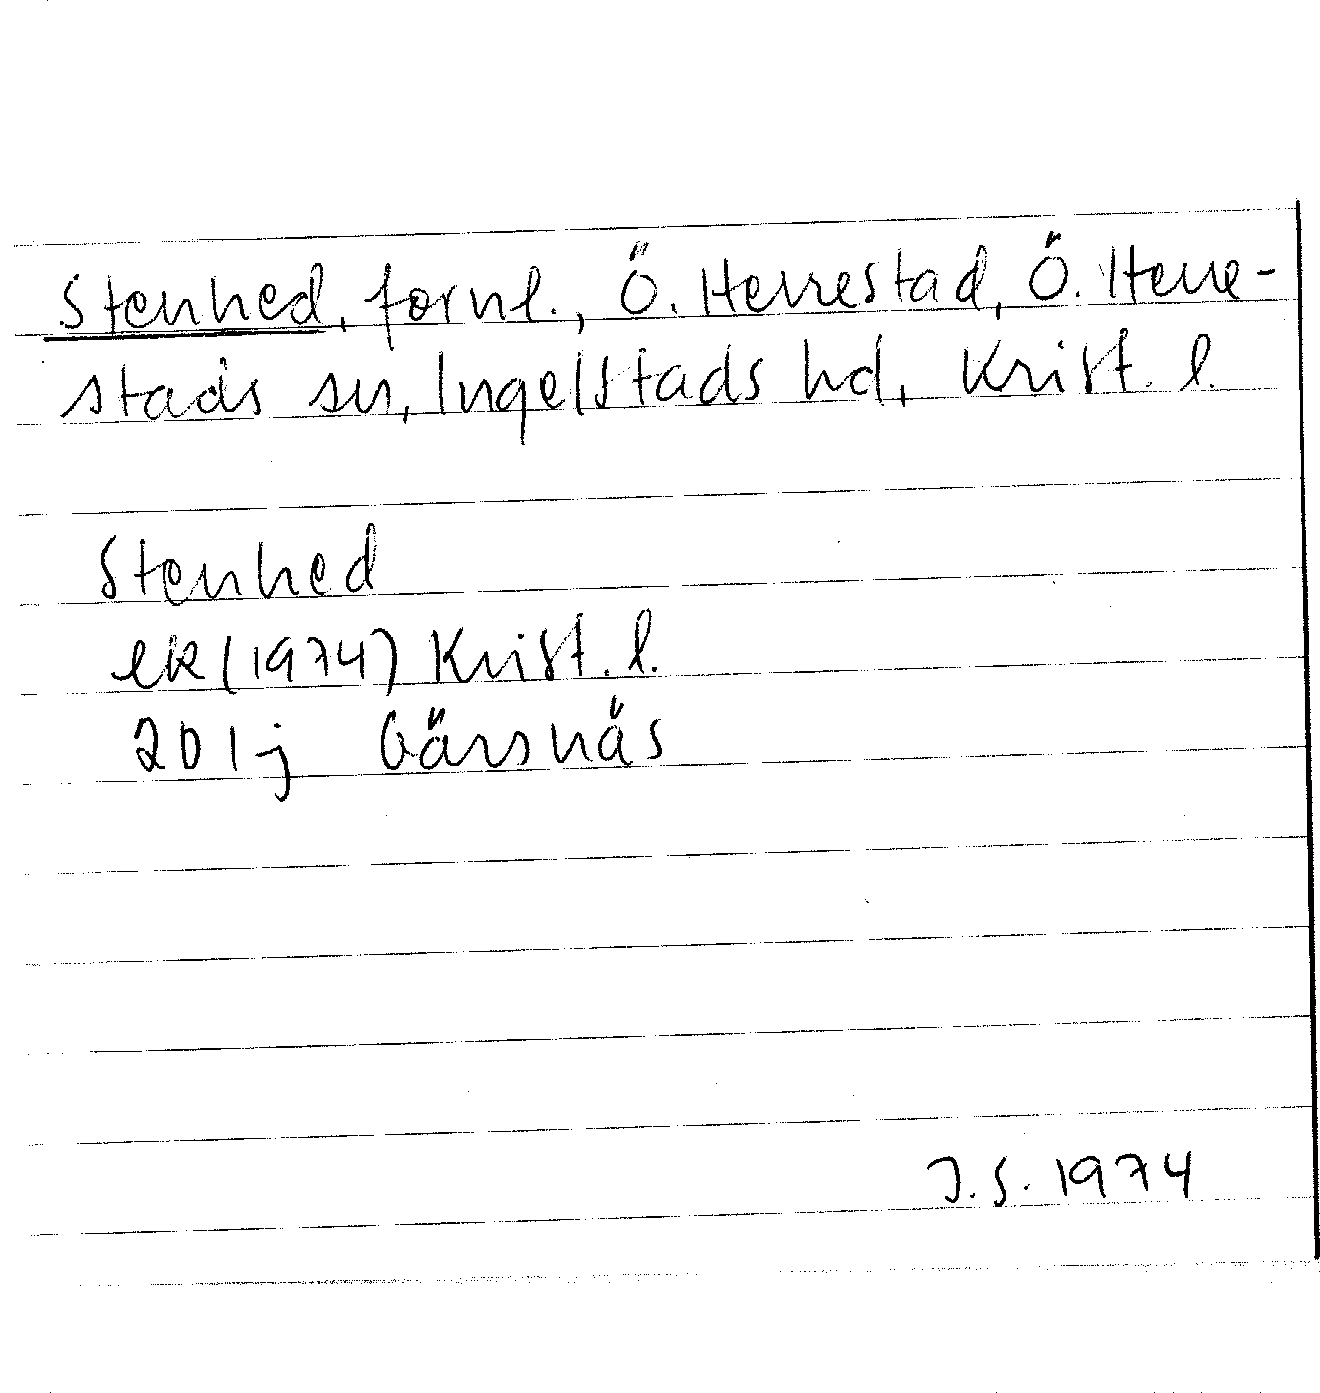 Stenhed, fornl., Ö. Herrestad, Ö. Herre-
stads sn, Ingelstads hd, Krist. l.
Stenhed
ek (1974) Krist. l.
2D 1j Gärsnäs
J.S. 1974